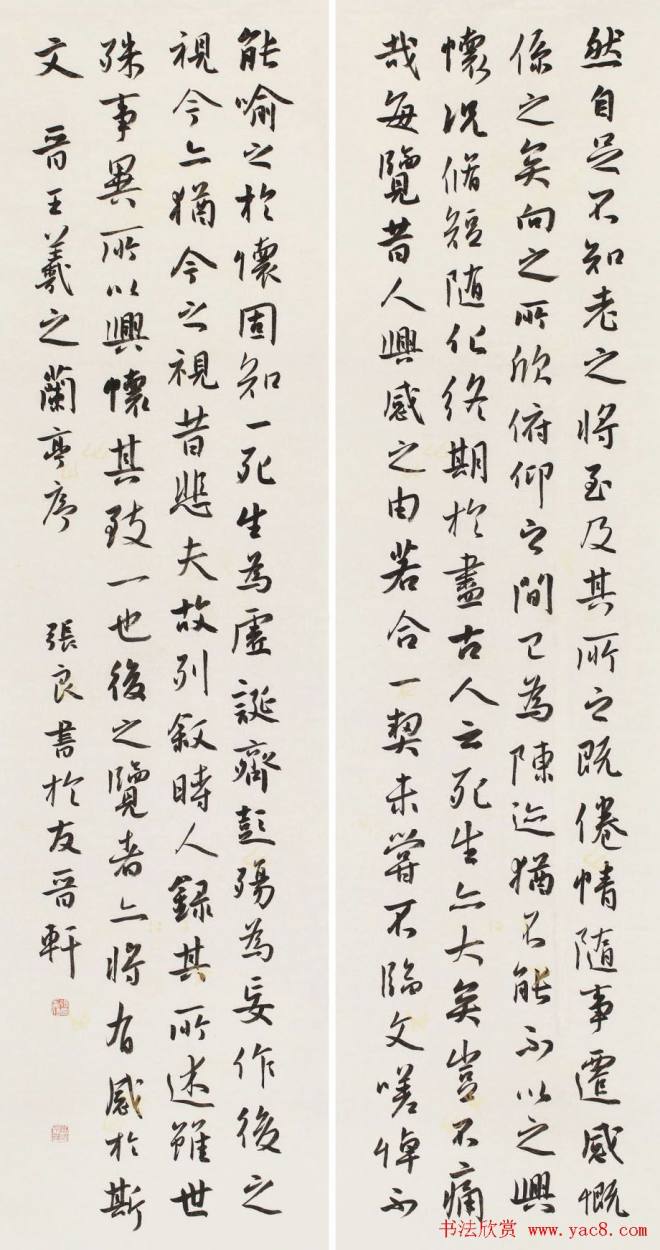 然自足不知老之將至及其所之既倦情隨事遷感慨
係之矣向之所欣俯仰之間已為陳迹猶不能不以之興
懷況脩短隨化終期於盡古人云死生亦大矣豈不痛
哉每覽昔人興感之由若合一契未嘗不臨文嗟悼不
能喻之於懷固知一死生為虛誕齊彭殤為妄作後之
視今亦猶今之視昔悲夫故列敘時人録其所述雖世
殊事異所以興懷其致一也後之覽者亦將有感於斯
文 晉王羲之蘭亭序 張良書於友晉軒
书法欣赏 www.yac8.com